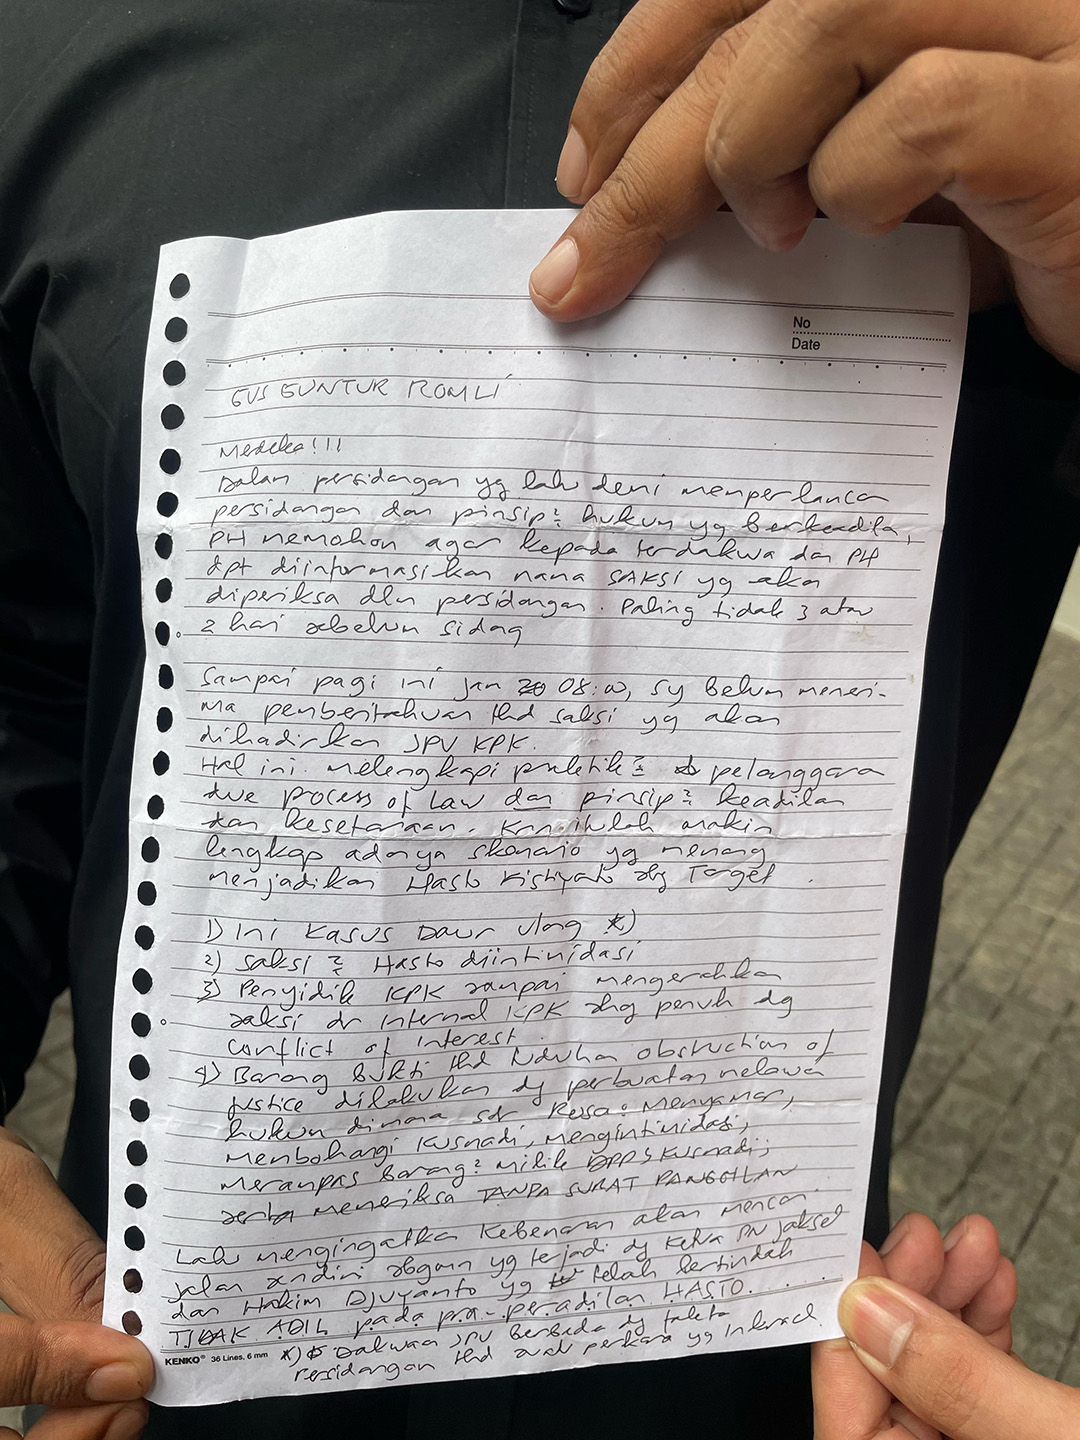 No
Date
GUS GUNTUR ROMLI
Merdeka!!!
Dalam persidangan yg lalu demi memperlancar
persidangan dan pinsip² hukum yg berkeadilan,
PH memohon agar kepada terdakwa dan PH
dpt diinformasikan nama SAKSI yg akan
diperiksa dlm persidangan. Paling tidak 3 atau
2 hari sebelum sidang
Sampai pagi ini jam 08:00, sy belum meneri-
ma pemberitahuan thd saksi yg akan
dihadirkan JPU KPK.
Hal ini melengkapi praktik² pelanggaran
due process of Law dan pinsip² keadilan
dan kesetaraan. Krn itulah makin
lengkap adanya skenario yg memang
menjadikan Hasto Kristiyanto sbg Target.
1) Ini Kasus Daur Ulang *)
2) Saksi² Hasto diintimidasi
3) Penyidik KPK sampai mengerahkan
saksi dr internal KPK sbg penuh dg
conflict of interest.
4) Barang Bukti thd tuduhan obstruction of
justice dilakukan dg perbuatan melawan
hukum dimana sdr Rosa: Menyamar,
Membohongi Kusnadi, mengintimidasi,
Merampas barang² milik DPP & Kusnadi;
serta memeriksa TANPA SURAT PANGGILAN
Lalu mengingatkan Kebenaran akan mencari
jalan sendiri sbgmn yg terjadi dg Ketua PN Jaksel
dan Hakim Djuyamto yg telah bertindak
TIDAK ADIL pada pra-peradilan HASTO.....
*) Dakwaan JPU berbeda dg fakta
Persidangan thd perkara yg Inkrach.
KENKO® 36 Lines, 6 mm